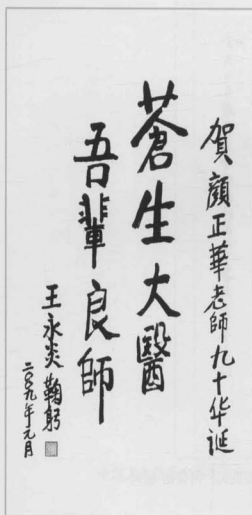 賀顏正華老師九十华诞
蒼生大醫
吾輩良師
王永炎鞠躬
二〇〇九年元月